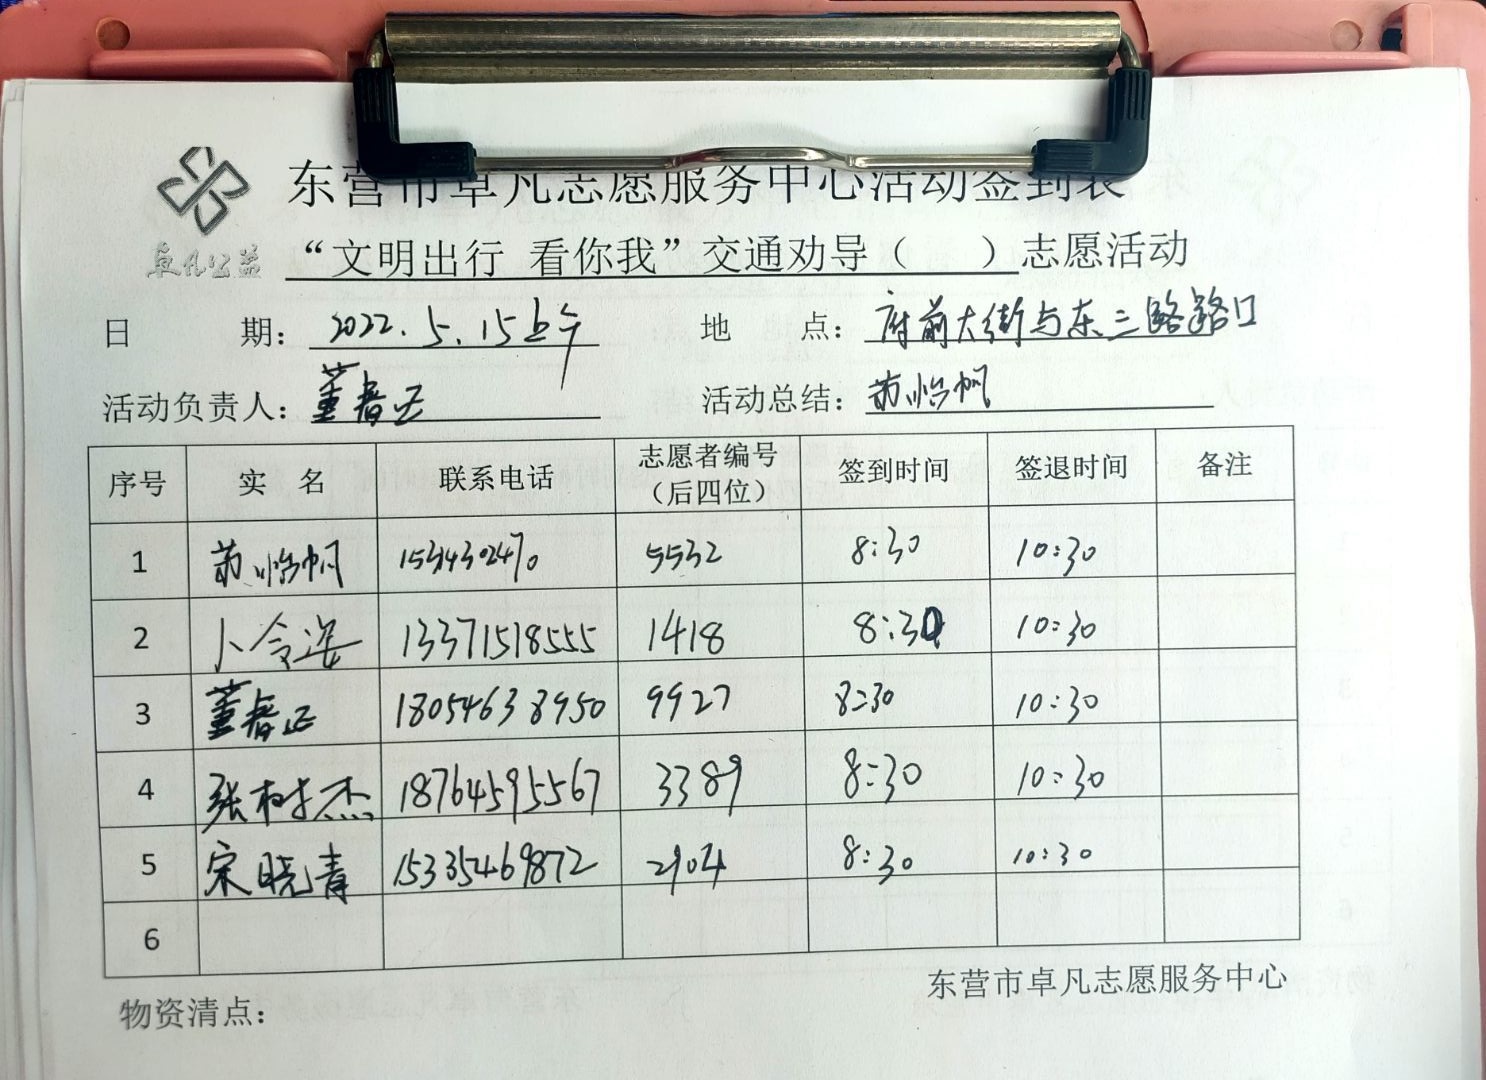 东营市卓凡志愿服务中心活动签到表
卓凡公益
“文明出行 看你我”交通劝导（ ）志愿活动
日 期： 2022.5.15上午 地 点： 府前大街与东三路路口
活动负责人： 董春正 活动总结： 苏怡帆
序号 实 名 联系电话 志愿者编号（后四位） 签到时间 签退时间 备注
1 苏怡帆 5532 8:30 10:30
2 卜令姿 13371518555 1418 8:30 10:30
3 董春正 18054638950 9927 8:30 10:30
4 张树杰 18764595567 3389 8:30 10:30
5 宋晓青 15335469872 2904 8:30 10:30
6
东营市卓凡志愿服务中心
物资清点：